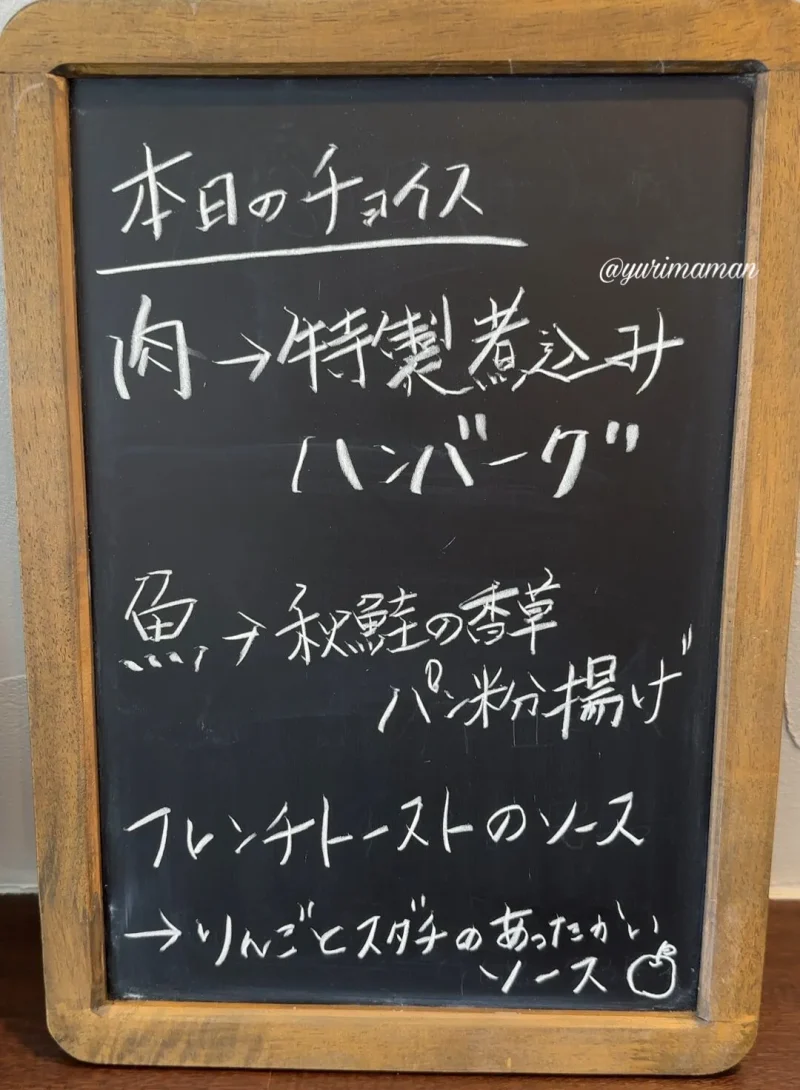 本日のチョイス
@yurimaman
肉→特製煮込み
ハンバーグ
魚→秋鮭の香草
パン粉揚げ
フレンチトーストのソース
→りんごとスダチのあったかい
ソース